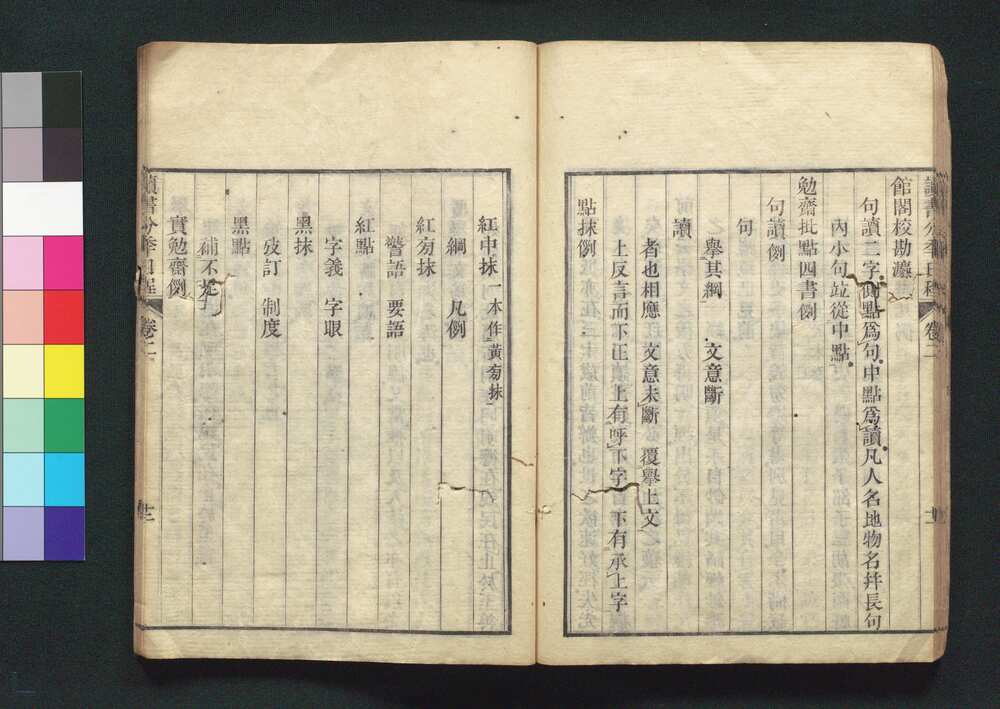 讀書分年日程 卷二 十一
館閣校勘灋
句讀二字側點爲句中點爲讀凡人名地物名幷長句
內小句竝從中點
勉齋批點四書例
句讀例
句
舉其綱 文意斷
讀
者也相應 文意未斷 覆舉上文
上反言而下正 上有呼下字 下有承上字
點抹例
紅中抹一本作黃旁抹
綱 凡例
紅旁抹
警語 要語
紅點
字義 字眼
黑抹
攷訂 制度
黑點
補不足
實勉齋例
讀書分年日程 卷二 十二